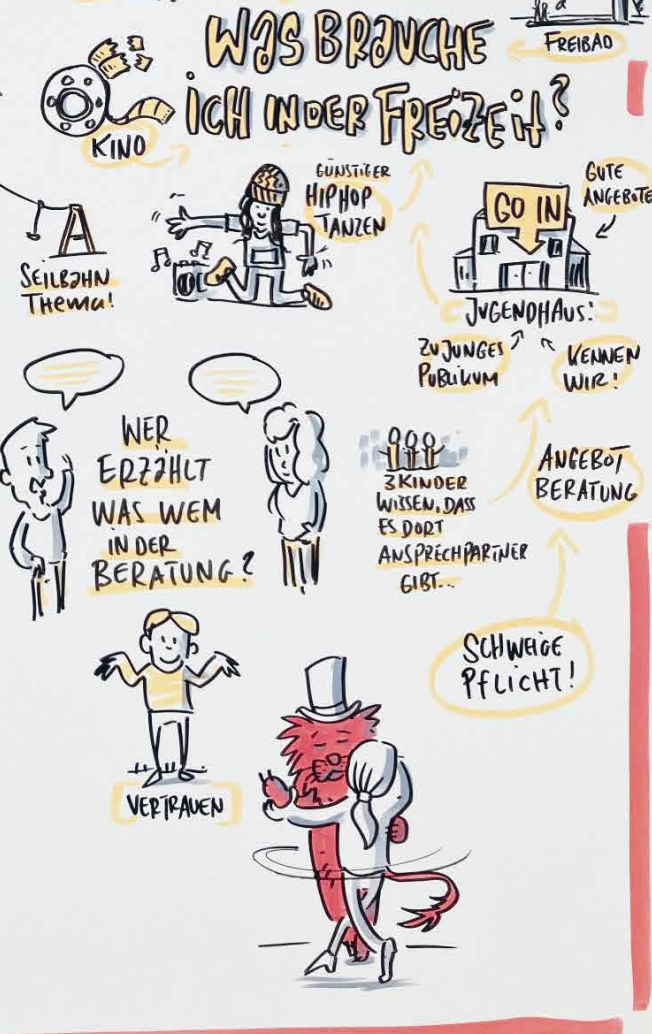 FREIBAD
WAS BRAUCHE
ICH IN DER FREIZEIT?
KINO
GÜNSTIGER
HIPHOP
TANZEN
GUTE
ANGEBOTE
GO IN
SEILBAHN
THEMA!
JUGENDHAUS:
ZU JUNGES
PUBLIKUM
KENNEN
WIR!
WER
ERZÄHLT
WAS WEM
IN DER
BERATUNG?
3 KINDER
WISSEN, DASS
ES DORT
ANSPRECHPARTNER
GIBT...
ANGEBOT
BERATUNG
SCHWEIGE
PFLICHT!
VERTRAUEN